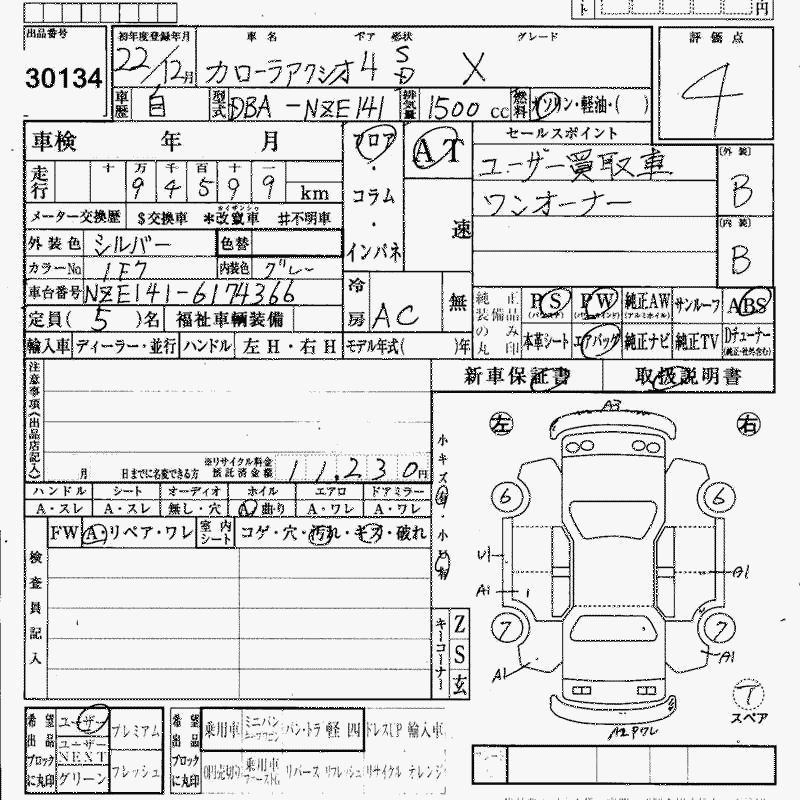 円
出品番号
30134
初年度登録年月
22/12月
車名 ドア 形状 グレード
カローラアクシオ 4 S D X
評価点
4
車歴 自 型式 DBA-NZE141 排気量 1500 CC 燃料 ガソリン・軽油・( )
車検 年 月
フロア・コラム・インパネ
AT
速
セールスポイント
ユーザー買取車
ワンオーナー
[外装]
B
[内装]
B
走行 十 万 千 百 十 一
9 4 5 9 9 km
メーター交換歴 $交換車 *改竄車 #不明車
外装色 シルバー 色替
カラーNo 1F7 内装色 グレー
車台番号 NZE141-6174366
定員( 5 )名 福祉車輌装備
冷房 AC 無
純正装備品のみ丸印
PS PW 純正AW サンルーフ ABS
(パワステ) (パワーウインド) (アルミホイル)
本革シート エアバッグ 純正ナビ 純正TV Dチューナー
(純正・社外含む)
輸入車 ディーラー・並行 ハンドル 左H・右H モデル年式( )年
新車保証書 取扱説明書
注意事項(出品店記入)
月 日までに名変できる方
※リサイクル料金預託済金額 11,230円
ハンドル シート オーディオ ホイル エアロ ドアミラー
A・スレ A・スレ 無し・穴 A 曲り A・ワレ A・ワレ
FW A・リペア・ワレ 室内シート コゲ・穴・汚れ・キズ・破れ
検査員記入
小キズ有・小凹有
キーコーナー
Z
S
玄
左 右
A3
6 6
U1
A1 A1
7 7
A1 A1
A2 Pワレ
T
スペア
希望出品ブロックに丸印
ユーザー プレミアム
ユーザーNEXT
グリーン フレッシュ
希望出品ブロックに丸印
乗用車 ミニバン バン・トラ 軽 四 ドレスUP 輸入車
0円売切り 乗用車 リバース リフレッシュ リサイクル チレンジ